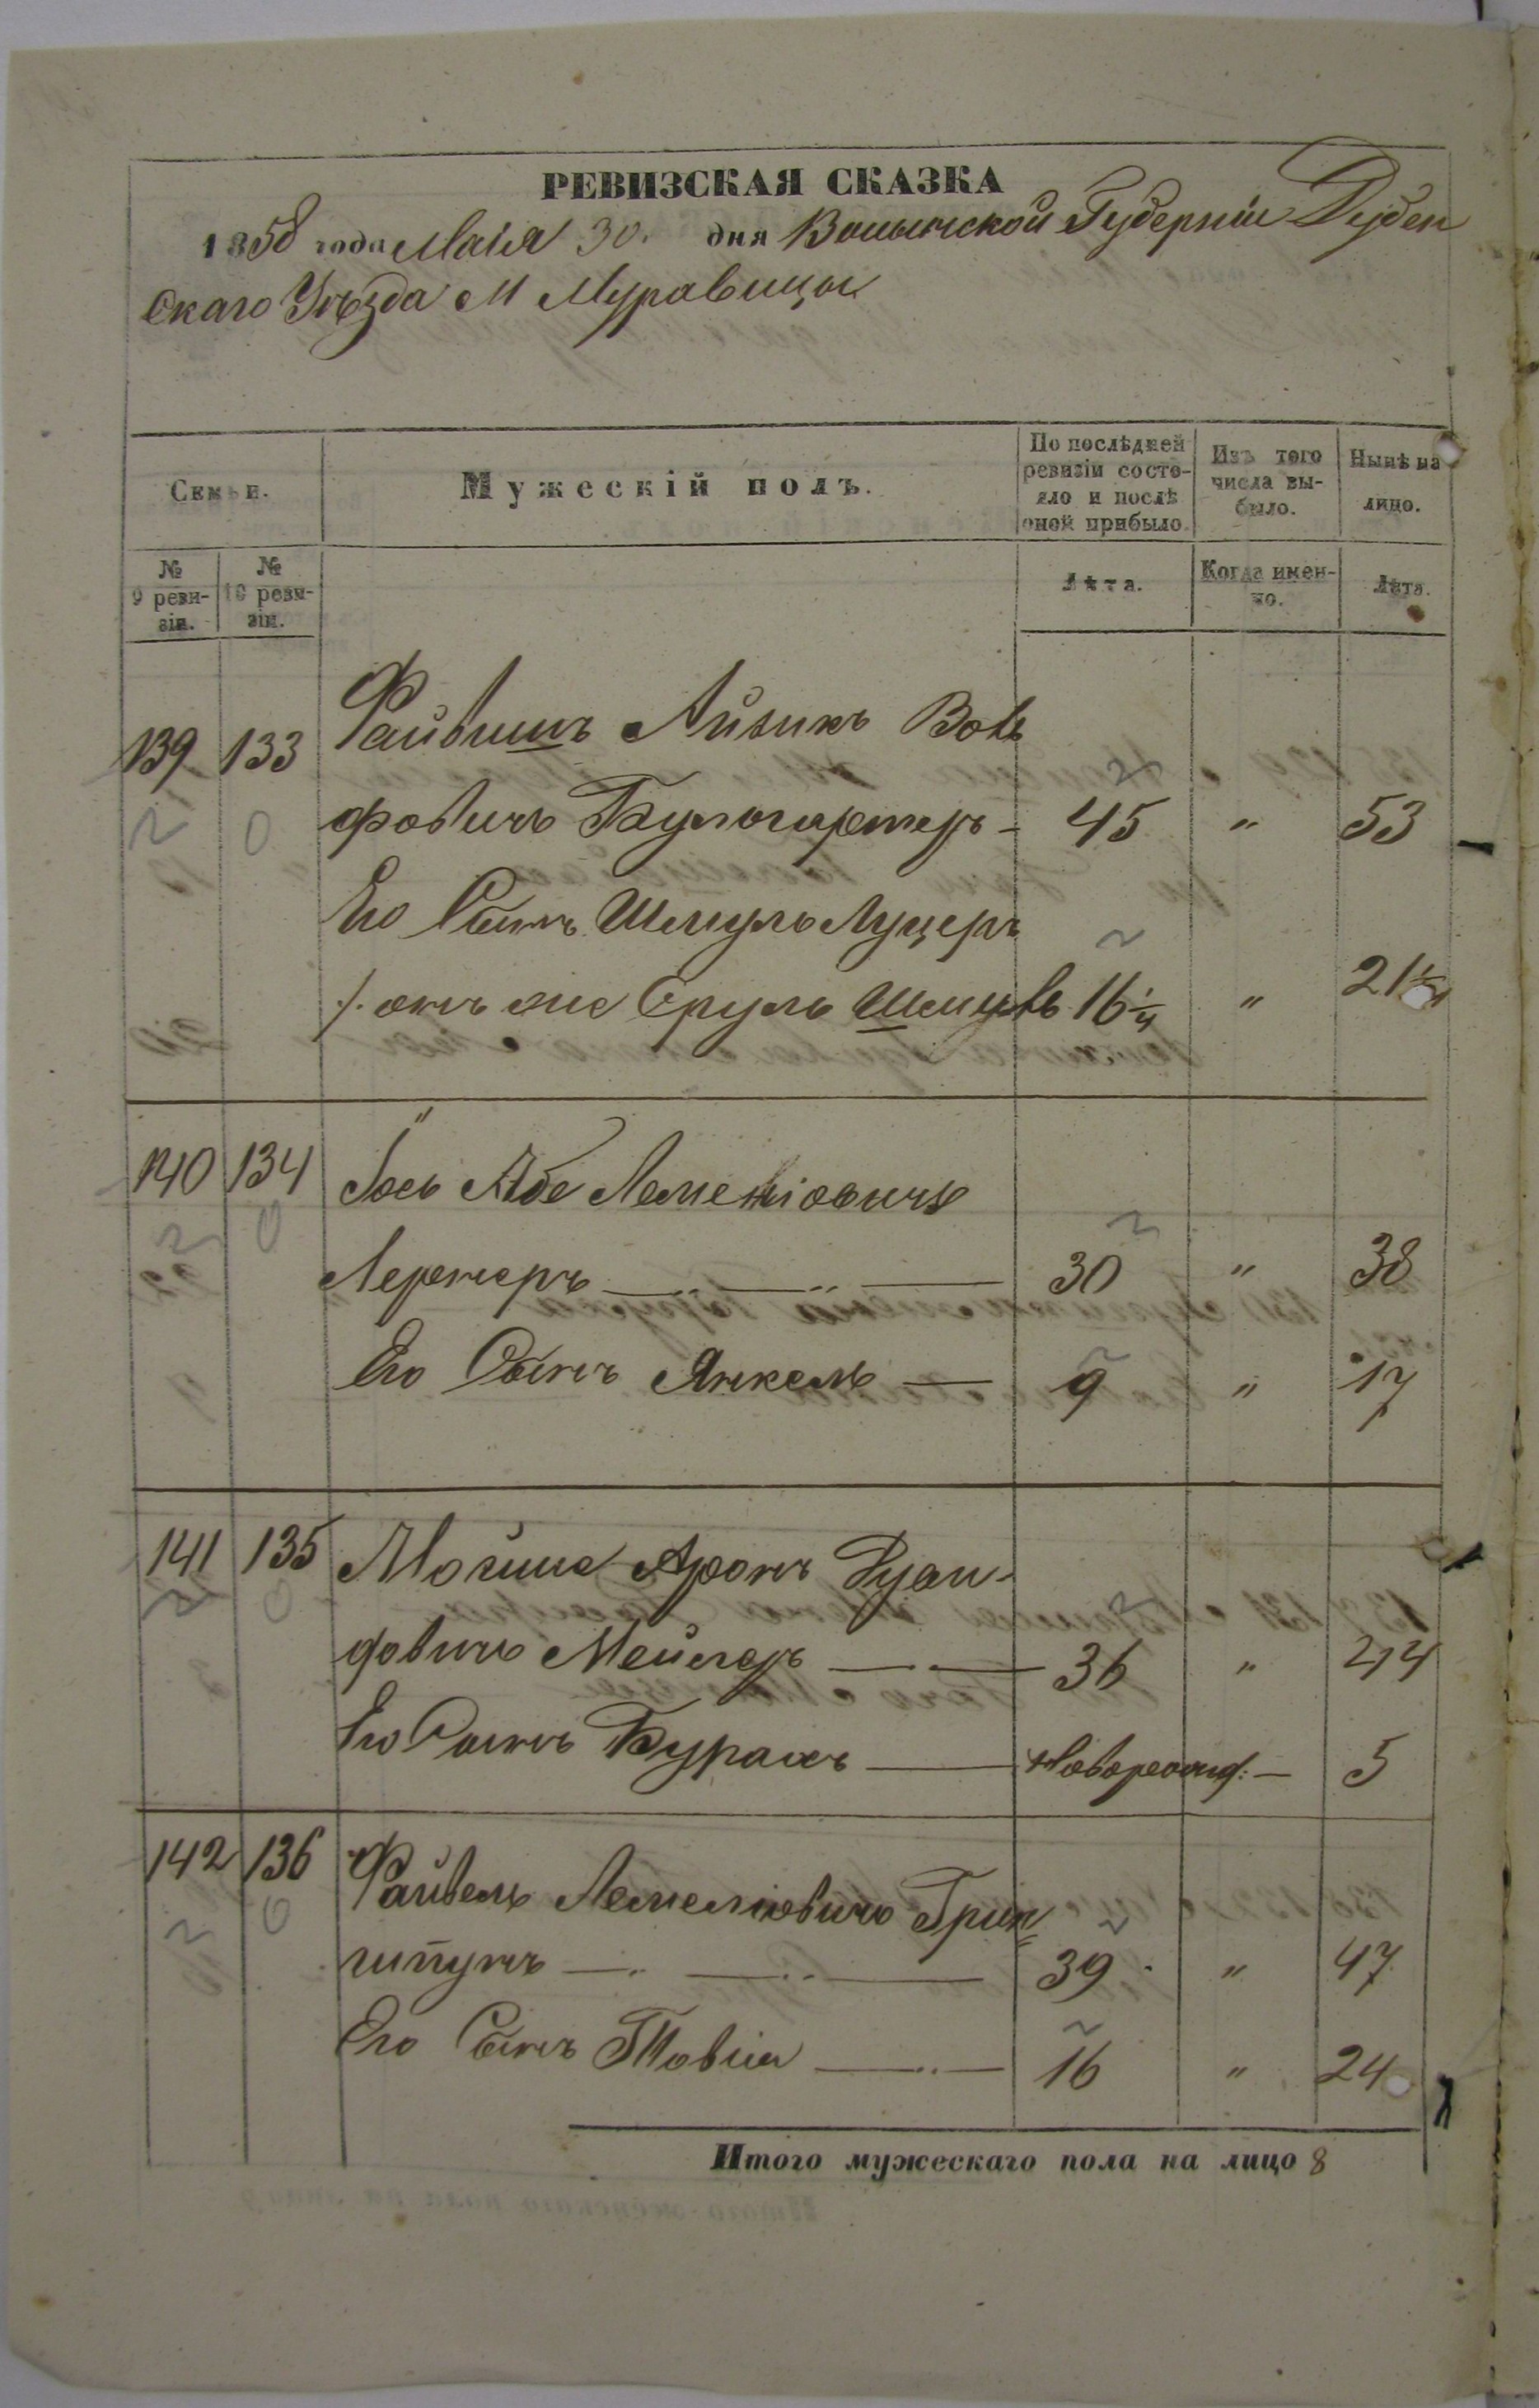 РЕВИЗСКАЯ СКАЗКА
1858 года Маія 30. дня Волынской Губерніи Дубен
скаго Уѣзда М Муравицы
Семьи.
Мужескій полъ.
По послѣдней ревизіи состояло и послѣ оной прибыло.
Изъ того числа выбыло.
Нынѣ на лицо.
№ 9 ревизіи.
№ 10 ревизіи.
Лѣта.
Когда именно.
Лѣта.
139 133 Файвишъ Айзикъ Воль
фовичъ 45 " 53
Его Сынъ Шмуль Луцеръ
/. онъ же Сруль Шмуль 16 " 21
140 134 Іось Абе
Лернеръ 30 " 38
Его Сынъ Янкель 9 " 17
141 135 Мошко Аронъ
довичъ Мейлеръ 36 " 44
Его Сынъ Бурахъ новорожд: 5
142 136 Файвель Лемелiовичъ Грин
шпунъ 39 " 47
Его Сынъ Товія 16 " 24
Итого мужескаго пола на лицо 8